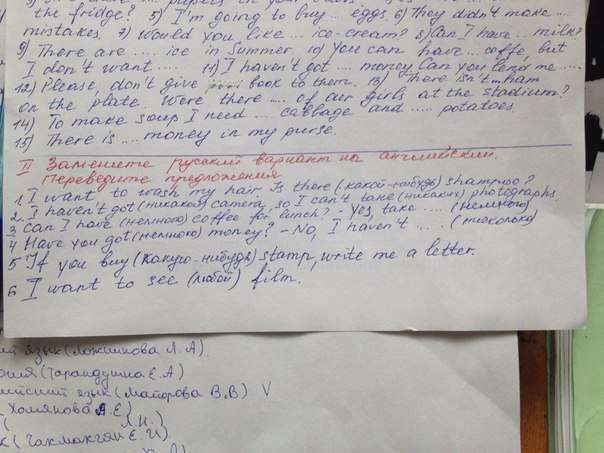 the fridge? 5) I'm going to buy .. eggs. 6) They didn't make ...
mistakes. 7) Would you like ... ice-cream? 8) Can I have .. milk?
9) There are .... ice in Summer. 10) You can have ... coffe, but
I don't want .... 11) I haven't got .... money. Can you lend me ....
12) Please, don't give book to them. 13) There isn't .. ham
on the plate. Were there .... of our girls at the stadium?
14) To make soup I need .... cabbage and .... potatoes
15) There is ... money in my purse.
II Замените русский вариант на английский.
Переведите предложения
1 I want to wash my hair. Is there (какой-нибудь) shampoo?
2. I haven't got (никакой) camera, so I can't take (никаких) photographs
3 Can I have (немного) coffee for lunch? - Yes, take .... (немного)
4 Have you got (немного) money? - No, I haven't .... (нисколько)
5 If you buy (какую-нибудь) stamp, write me a letter.
6 I want to see (любой) film.
язык (Ложникова Л.А).
(Тарандушка Е.А)
язык (Майорова В.В) V
Хомякова А.Е)
( Л.Н.)
(Чакмакчян Е.И)